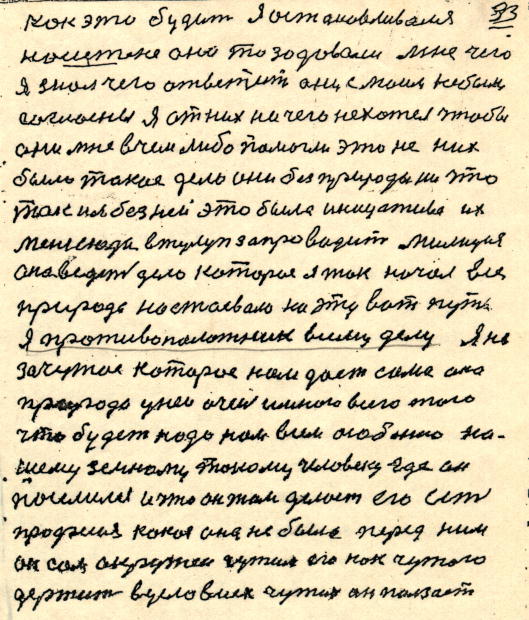 как это будит я останавливался 593
на истене они то задовали мне чего
я знал чего ответит они с моим небыли
согласены я от них ничего нехотел чтобы
они мне вчем либо помогли это не них
было такое дело они без природы ни что
так им без ней это была инициатива их
меня сюда втулуп запроводит милиция
она ведет дело которое я так начал вся
природа настоевала на эту вот путь
я противополотник всему делу я не
за чужое которое нам дает сама она
природа у нея очен имного всего того
что будет надо нам всем особенно на-
шему земному такому человеку где он
поселился и что он там делает его ест
профессия какая она не была перед ним
он сам окружен чужим его как чужого
держит в село всех чужих он ползает